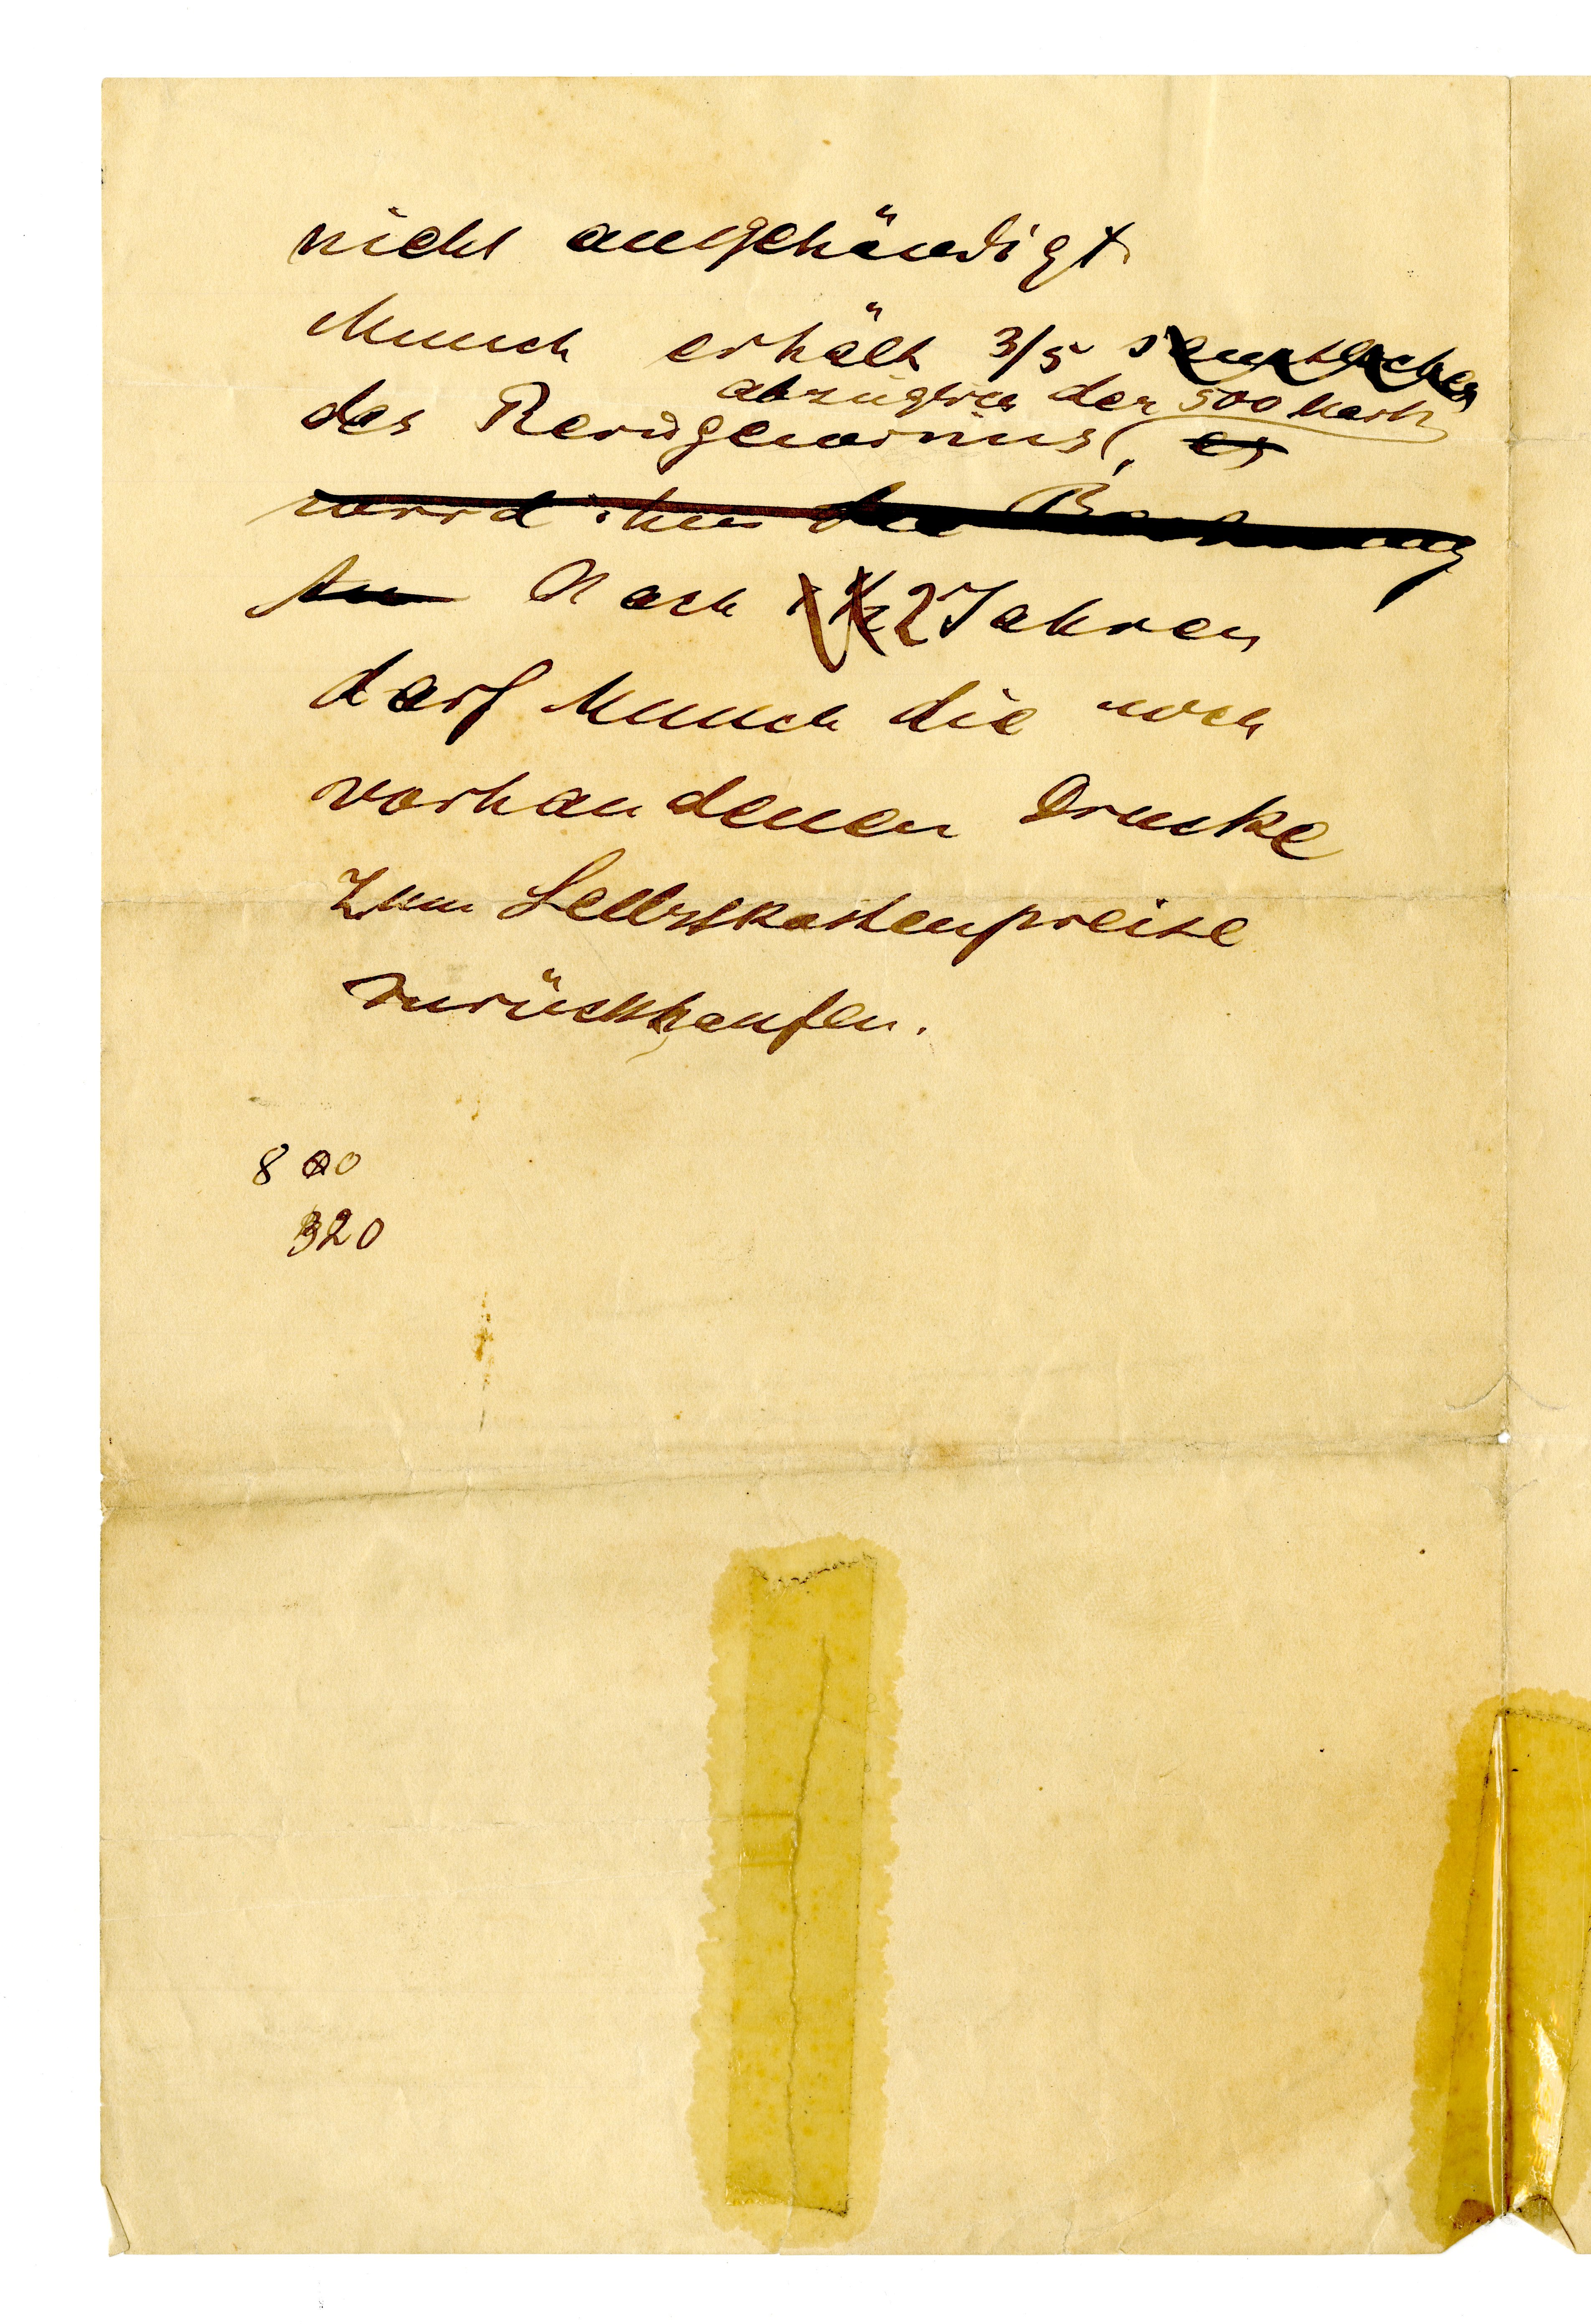 nicht ausgehändigt
Munch erhält 3/5 saemtlicher
abzüglich der 500 Mark
des Reingewinns, es
wird ihm die Rechnung
Nach 2 Jahren
darf Munch die noch
vorhandenen Drucke
zum Selbstkostenpreise
zurückkaufen.
800
320